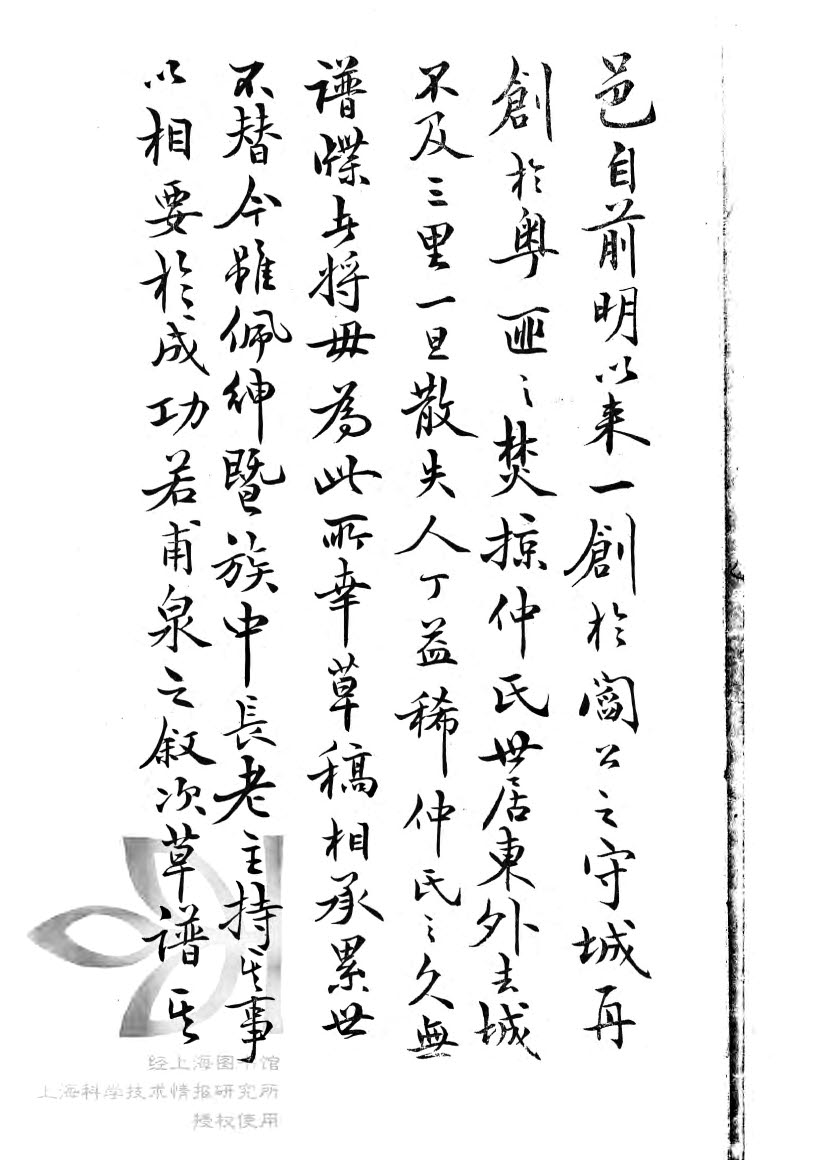 邑自前明以来一創於閻公之守城再
創於粤匪之焚掠仲氏世居東外去城
不及三里一旦散失人丁益稀仲氏之久無
譜牒者將毋為此所幸草稿相承累世
不替今雖佩紳暨族中長老主持其事
以相要於成功若甫泉之叙次草谱其
经上海图书馆
上海科学技术情报研究所
授权使用